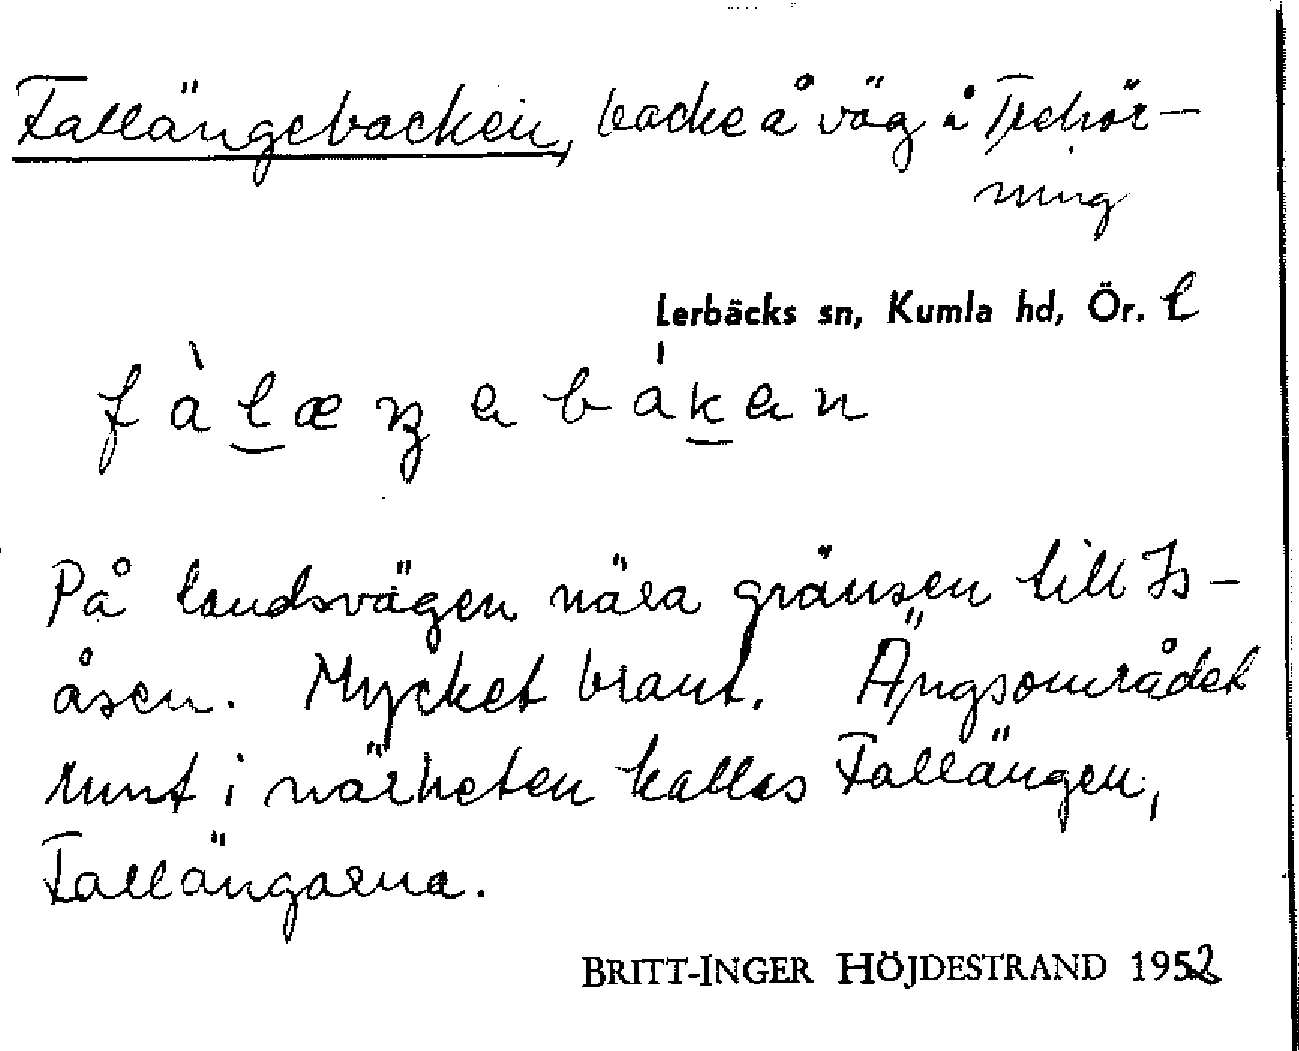 Fallängebacken, backe å väg å Trehör-
ning
Lerbäcks sn, Kumla hd, Ör. l
fàlæŋebákan
På landsvägen nära gränsen till Is-
åsen. Mycket brant. Ängsområdet
runt i närheten kallas Fallängen,
Fallängarna.
BRITT-INGER HÖJDESTRAND 1952